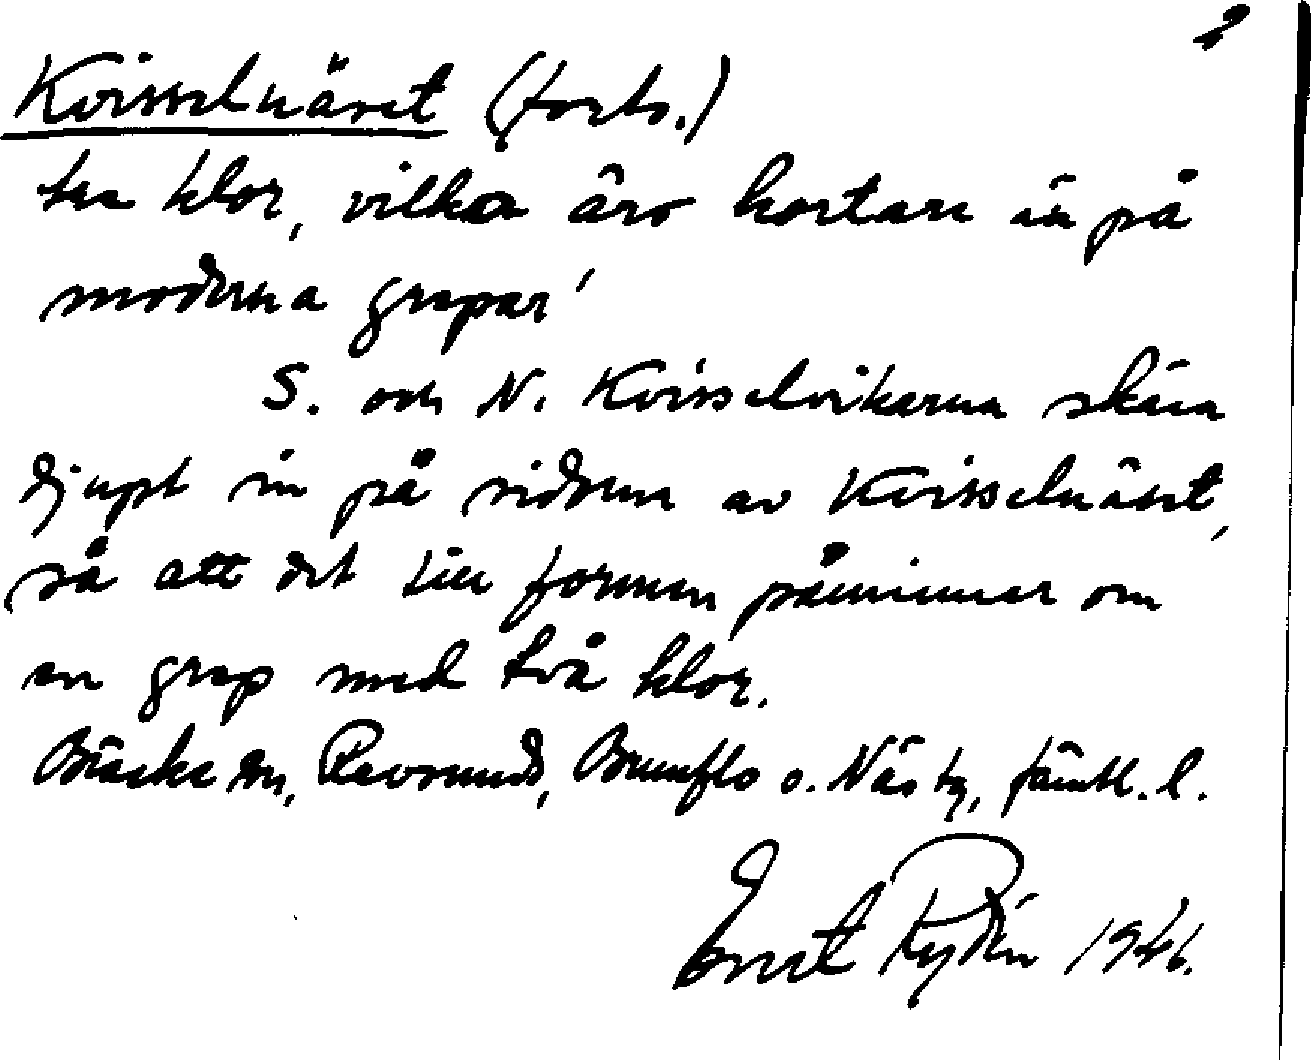 2
Kvisselnäset (forts.)
tre klor, vilka äro kortare än på
moderna grepar!
S. och N. Kvisselvikarna skära
djupt in på sidorna av Kvisselnäset,
så att det till formen påminner om
en grep med två klor.
Bräcke sn, Revsunds, Brunflo o. Näs tg, Jämtl. l.
Ernst Rydén 1946.